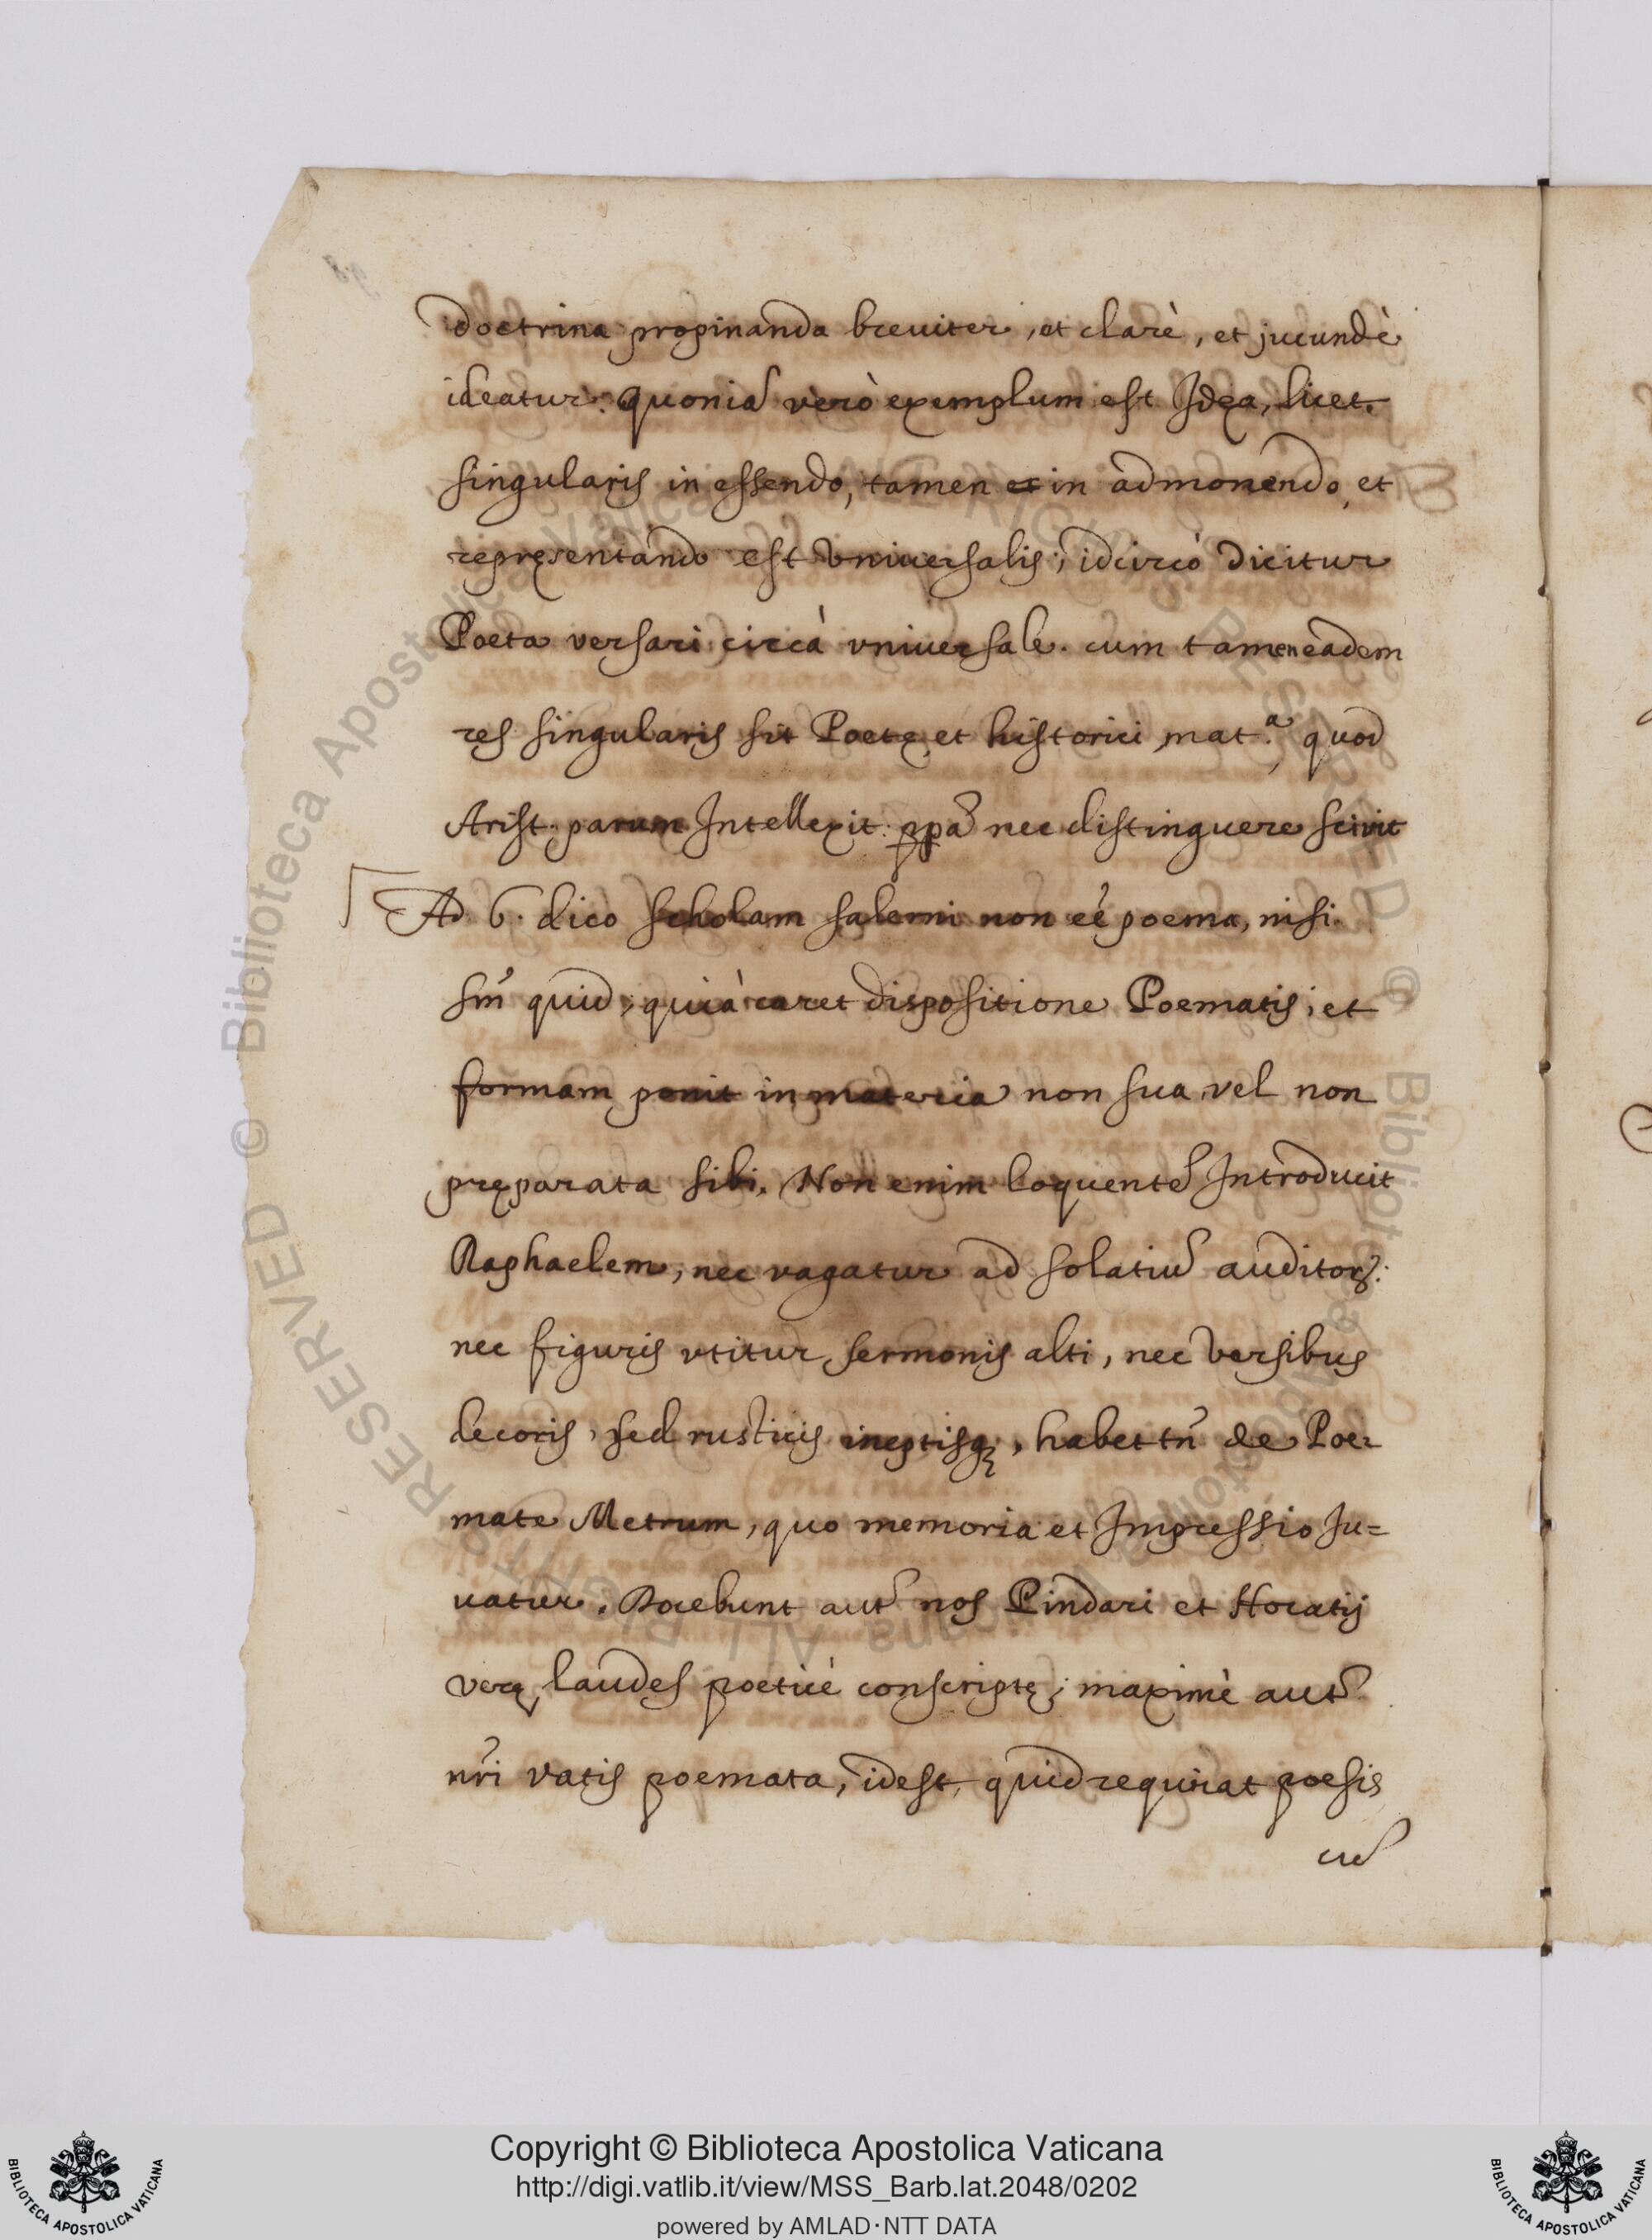 doctrina propinanda breuiter, et clarè, et jucundè
ideatur. Quoniã verò exemplum est Idęa, licet
singularis in essendo, tamen in admonendo, et
repręsentando est Vniuersalis; idcircò dicitur
Poeta versari circà vniuersale. cum tamen eadem
res singularis sit Poetę, et historici mat.ª quod
Arist. parum Intellexit. nec distinguere sciuit
Ad 6. dico scholam salerni non eé poema, nisi
sm̃ quid, quià caret dispositione Poematis; et
formam ponit in materia non sua, vel non
pręparata sibi. Non enim loquentẽ Introducit
Raphaelem, nec vagatur ad solatiũ auditorꝝ:
nec figuris vtitur sermonis alti, nec Versibus
decoris, sed rusticis ineptisq;, habet tñ de Poe=
mate Metrum, quo memoria et Impressio Iu=
uatur. Docebunt autẽ nos Pindari et Horatij
verę laudes poeticè conscriptę; maximè autẽ
nr̃i vatis poemata, idest, quid requirat poesis
cũ
Copyright © Biblioteca Apostolica Vaticana
http://digi.vatlib.it/view/MSS_Barb.lat.2048/0202
powered by AMLAD·NTT DATA
BIBLIOTECA APOSTOLICA VATICANA
BIBLIOTECA APOSTOLICA VATICANA
© Biblioteca Apostolica Vaticana ALL RIGHTS RESERVED © Biblioteca Apostolica Vaticana ALL RIGHTS RESERVED